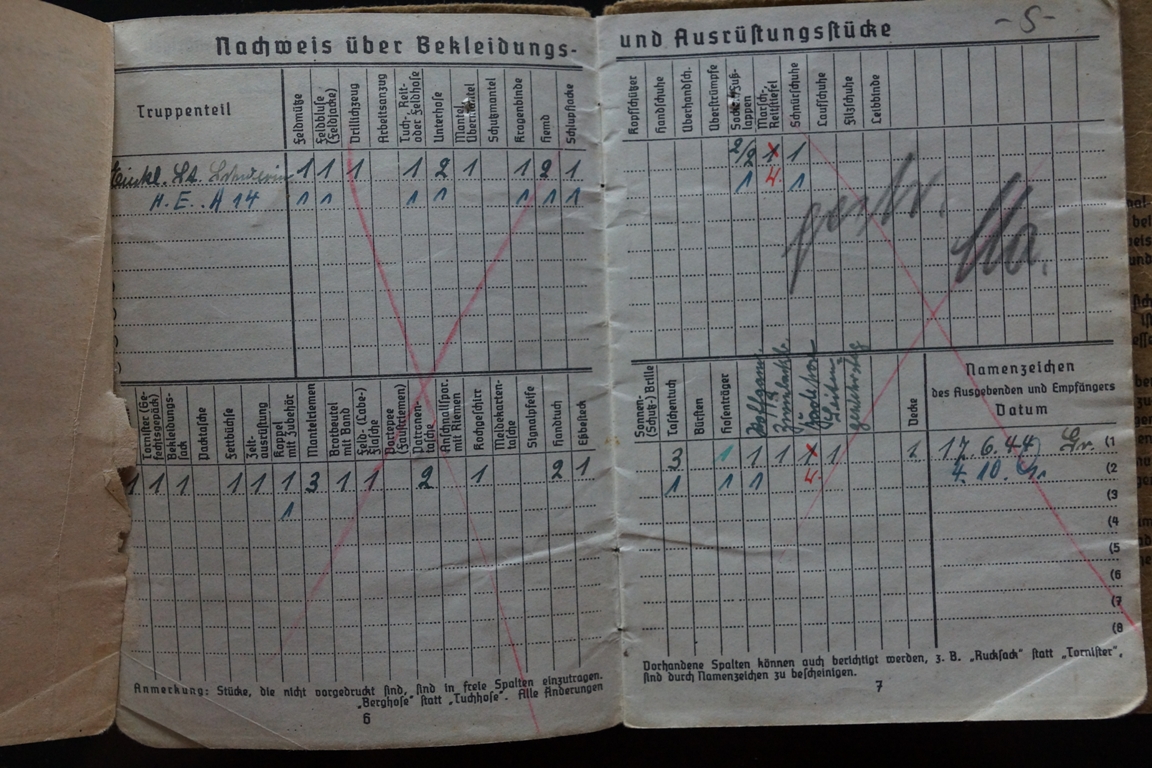 Nachweis über Bekleidungs-
Truppenteil
Feldmütze
Feldbluse (Feldjacke)
Drillichzeug
Arbeitsanzug
Tuch-, Reit- oder Feldhose
Unterhose
Mantel
Schutzmantel
Kragenbinde
Hemd
Schlupfjacke
1 1 1 1 2 1 1 2 1
H. E. A 14 1 1 1 1 1 1 1
Tornister (Gefechtsgepäck)
Bekleidungssack
Packtasche
Fettbüchse
Zeltausrüstung
Koppel mit Zubehör
Mantelriemen
Brotbeutel mit Band
Feld-(Labe-)flasche
Patronentasche
Anschnallspor. mit Riemen
Kochgeschirr
Meldekartentasche
Signalpfeife
Handtuch
Eßbesteck
1 1 1 1 1 1 3 1 1 2 1 2 1
1
Anmerkung: Stücke, die nicht vorgedruckt sind, sind in freie Spalten einzutragen.
„Berghose" statt „Tuchhose". Alle Änderungen
6
und Ausrüstungsstücke
-5-
Kopfschützer
Handschuhe
Überhandsch.
Überstrümpfe
Marsch-, Reitstiefel
Schnürschuhe
Laufschuhe
Filzschuhe
Leibbinde
2/2 1 1
1 4. 1
Sonnen-(Schutz-) Brille
Taschentuch
Bürsten
Hosenträger
Decke
Namenzeichen
des Ausgebenden und Empfängers
Datum
3 1 1 1 1 1 1 17. 6. 44 (1
1 1 1 4. 4. 10. (2
(3
(4
(5
(6
(7
(8
Vorhandene Spalten können auch berichtigt werden, z. B. „Rucksack" statt „Tornister",
sind durch Namenzeichen zu bescheinigen.
7